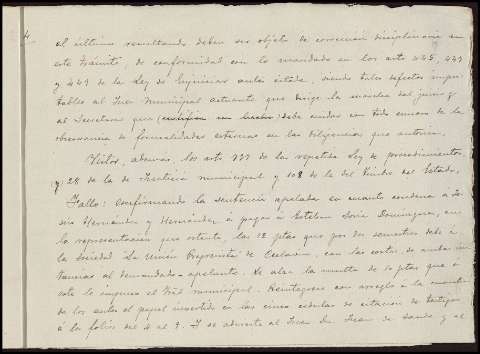 4
el último resultando deben ser objeto de corrección disciplinaria en
este trámite, de conformidad con lo mandado en los arts 445, 447
y 449 de la Ley de Enjuiciar antes citada, siendo tales defectos impu-
tables al Juez Municipal actuante que dirige la marcha del juicio y
al Secretario que (certifica un hecho) debe cuidar con todo esmero de la
observancia de formalidades externas en las diligencias que autoriza.
Vistos, además, los arts 737 de la repetida Ley de procedimientos,
y 28 de la de Justicia municipal y 108 de la del Timbre del Estado,
Fallo: Confirmando la sentencia apelada en cuanto condena á
Hernández y Hernández á pagar á Esteban Soria Domínguez, en
la representación que ostenta, las 12 ptas que por dos semestres debe á
la Sociedad "La Unión Progresista" de con las costas de ambas ins-
tancias al demandado apelante. Se alza la multa de 10 ptas que á
este le impuso el Trial municipal. Reintégrese con arreglo á la cuantía
de los autos el papel invertido en las cinco cédulas de citación de testigos
á los folios del 4 al 9. Y se advierte al Juez Dn Juan de y al